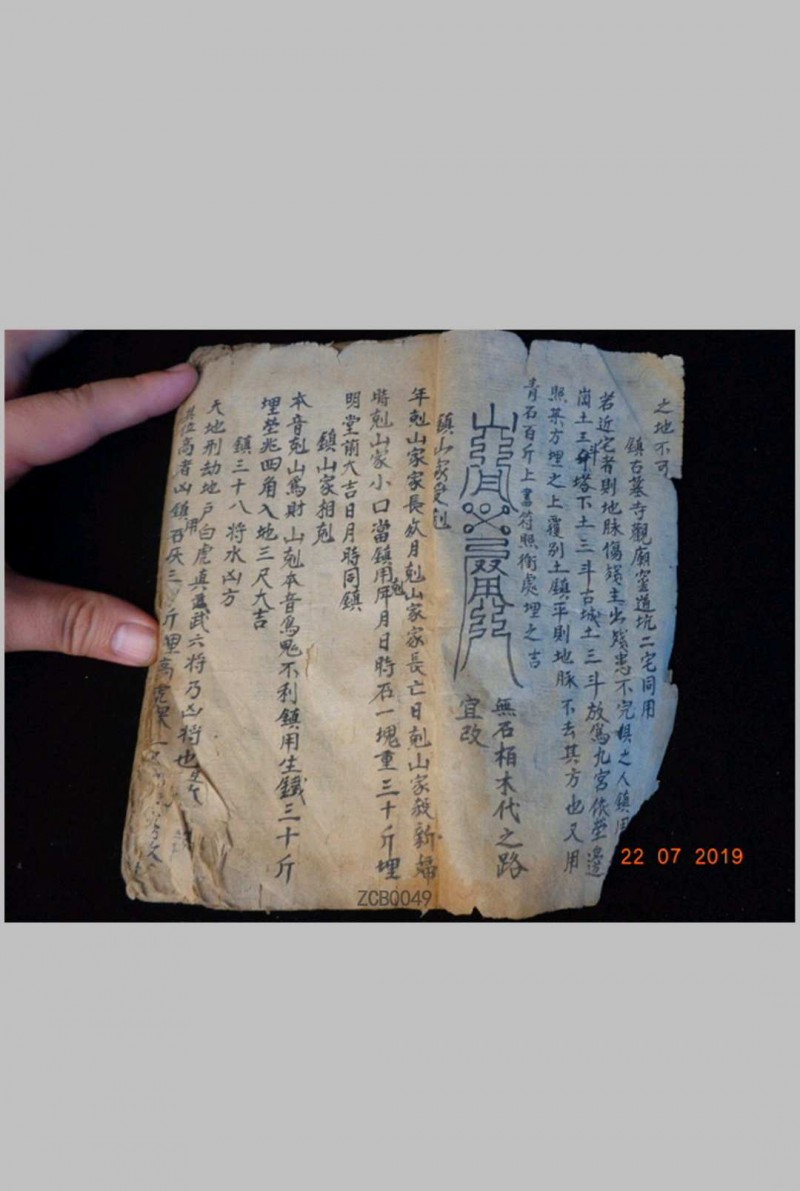 之地不可
鎮古墓寺觀廟窰道坑二宅同用
若近宅者則地脉傷錢主出殘患不完損之人鎮用
崗土三斗塔下土三斗古城土三斗放為九宮依塋遶
照某方埋之上覆別土鎮平則地脉不去其方也又用
青石百斤上書符照衝處埋之吉
無石栢木代之路
宜改
鎮山家受剋
年剋山家家長故月剋山家家長亡日剋山家殺新婦
時剋山家小口當鎮用年月日時石一塊重三十斤埋
明堂前大吉日月時同鎮
鎮山家相剋
本音剋山為財山剋本音為鬼不利鎮用生鐵三十斤
埋塋兆四角入地三尺大吉
鎮三十八將水凶方
天地刑劫地戶白虎真武六將乃凶將也
其位高者凶鎮用石灰三斤埋
22 07 2019
ZCB0049